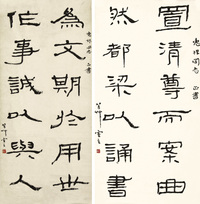 置清尊而案曲
然都梁以誦書
為文期於用世
作事誠以與人